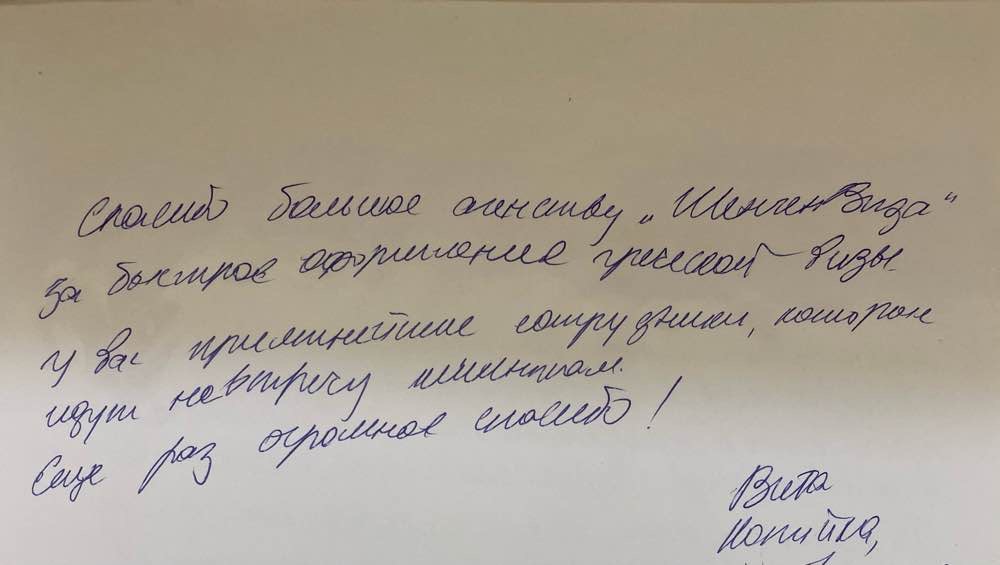 Спасибо большое агенству „ШенгенВиза“
за быстрое оформление греческой визы.
У вас приятнейшие сотрудники, которые
идут навстречу клиентам.
Еще раз огромное спасибо!
Вита
Копийка,